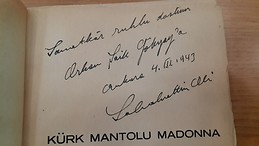 Sanatkâr ruhlu dostum
Orhan Şaik Gökyay'a
Ankara 4.III.1943
Sabahattin Ali
KÜRK MANTOLU MADONNA